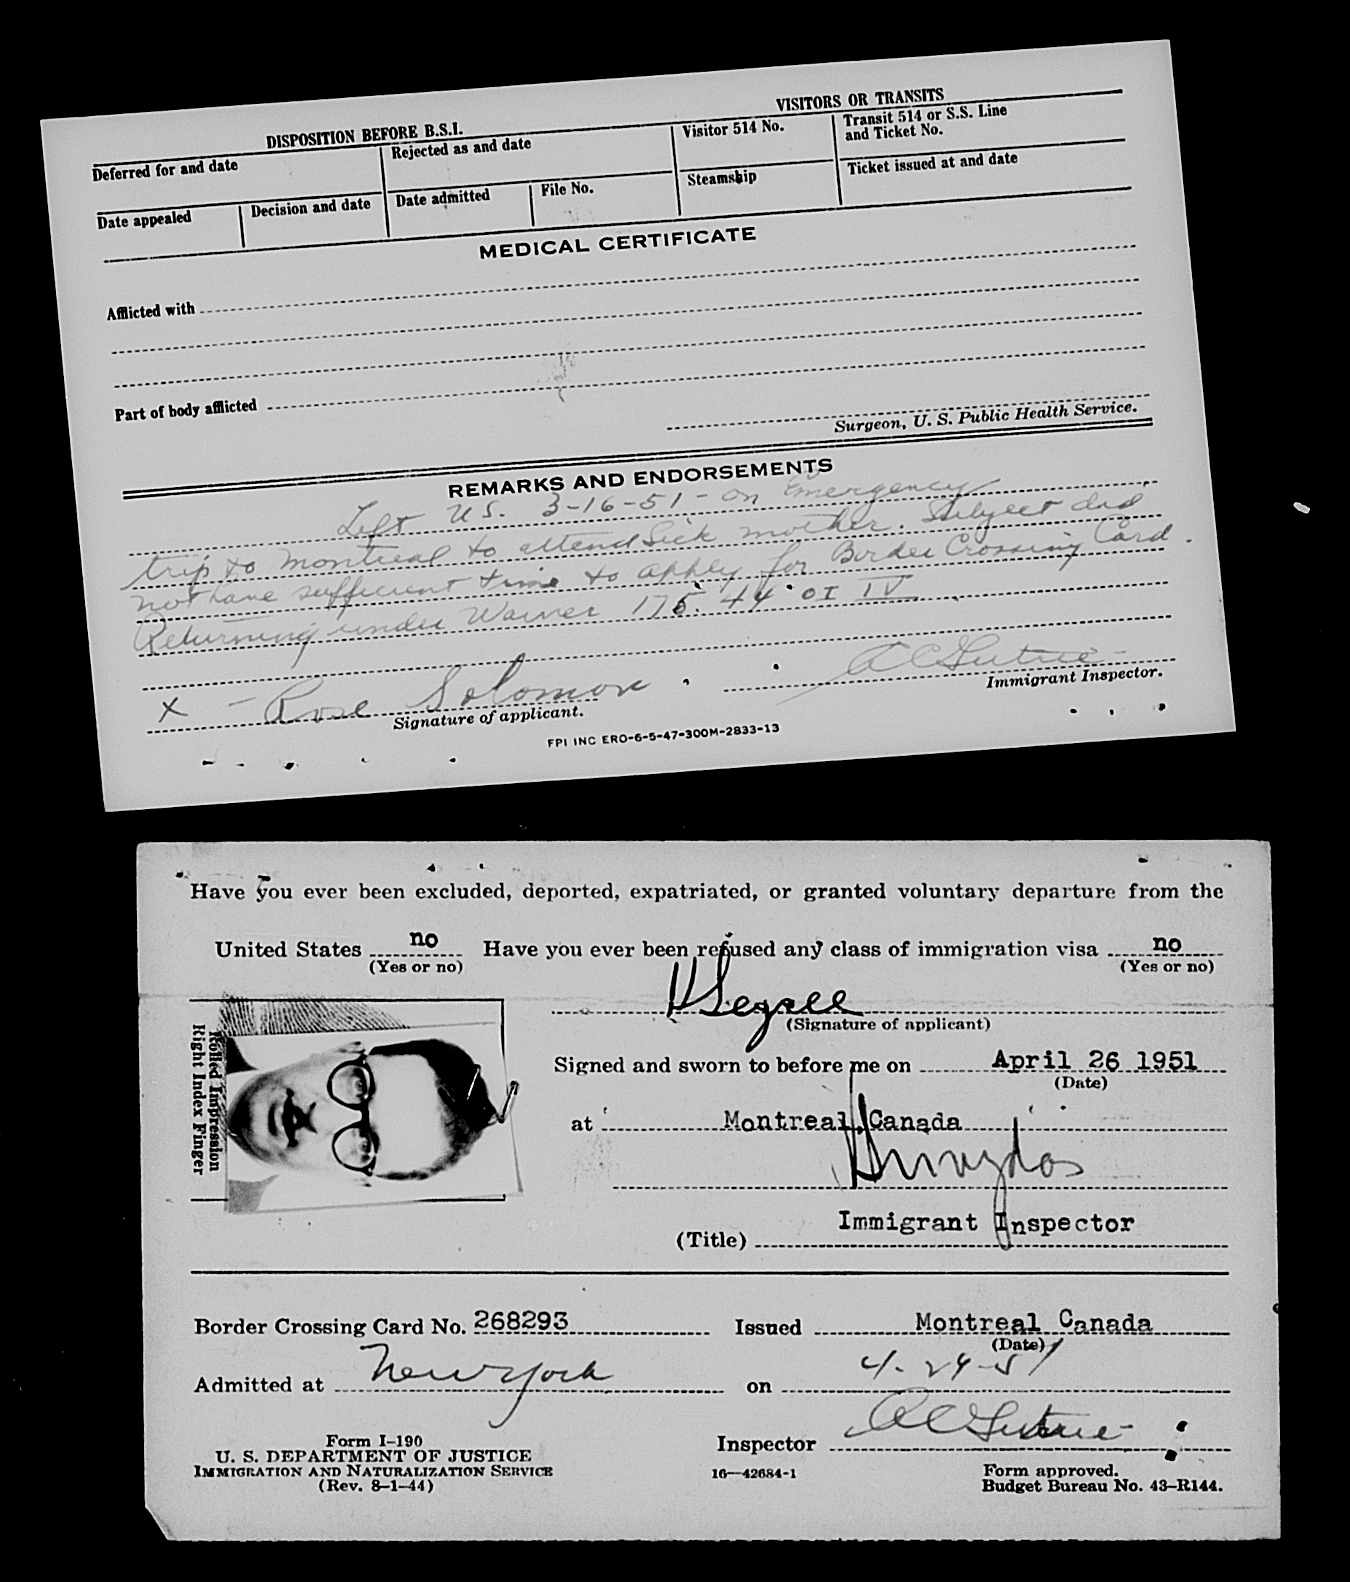 DISPOSITION BEFORE B.S.I.
VISITORS OR TRANSITS
Deferred for and date
Rejected as and date
Visitor 514 No.
Transit 514 or S.S. Line
and Ticket No.
Date appealed
Decision and date
Date admitted
File No.
Steamship
Ticket issued at and date
MEDICAL CERTIFICATE
Afflicted with
Part of body afflicted
Surgeon, U. S. Public Health Service.
REMARKS AND ENDORSEMENTS
Left U.S. 3-16-51 - on Emergency
trip to Montreal to attend Sick mother. Subject did
not have sufficient time to apply for Border Crossing Card.
Returning under Waiver 175.44 OI IV
x - Rose Solomon
Signature of applicant.
Immigrant Inspector.
FPI INC ERO-6-5-47-300M-2833-13
Have you ever been excluded, deported, expatriated, or granted voluntary departure from the
United States no Have you ever been refused any class of immigration visa no
(Yes or no) (Yes or no)
Segall
(Signature of applicant)
Rolled Impression
Right Index Finger
Signed and sworn to before me on April 26 1951
(Date)
at Montreal, Canada
(Title) Immigrant Inspector
Border Crossing Card No. 268293 Issued Montreal Canada
(Date)
Admitted at New York on 4-29-51
Inspector
Form I-190
U. S. DEPARTMENT OF JUSTICE
IMMIGRATION AND NATURALIZATION SERVICE
(Rev. 8-1-44)
16—42684-1
Form approved.
Budget Bureau No. 43-R144.